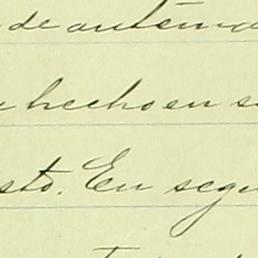 de antem
hecho en s
sto. En segu